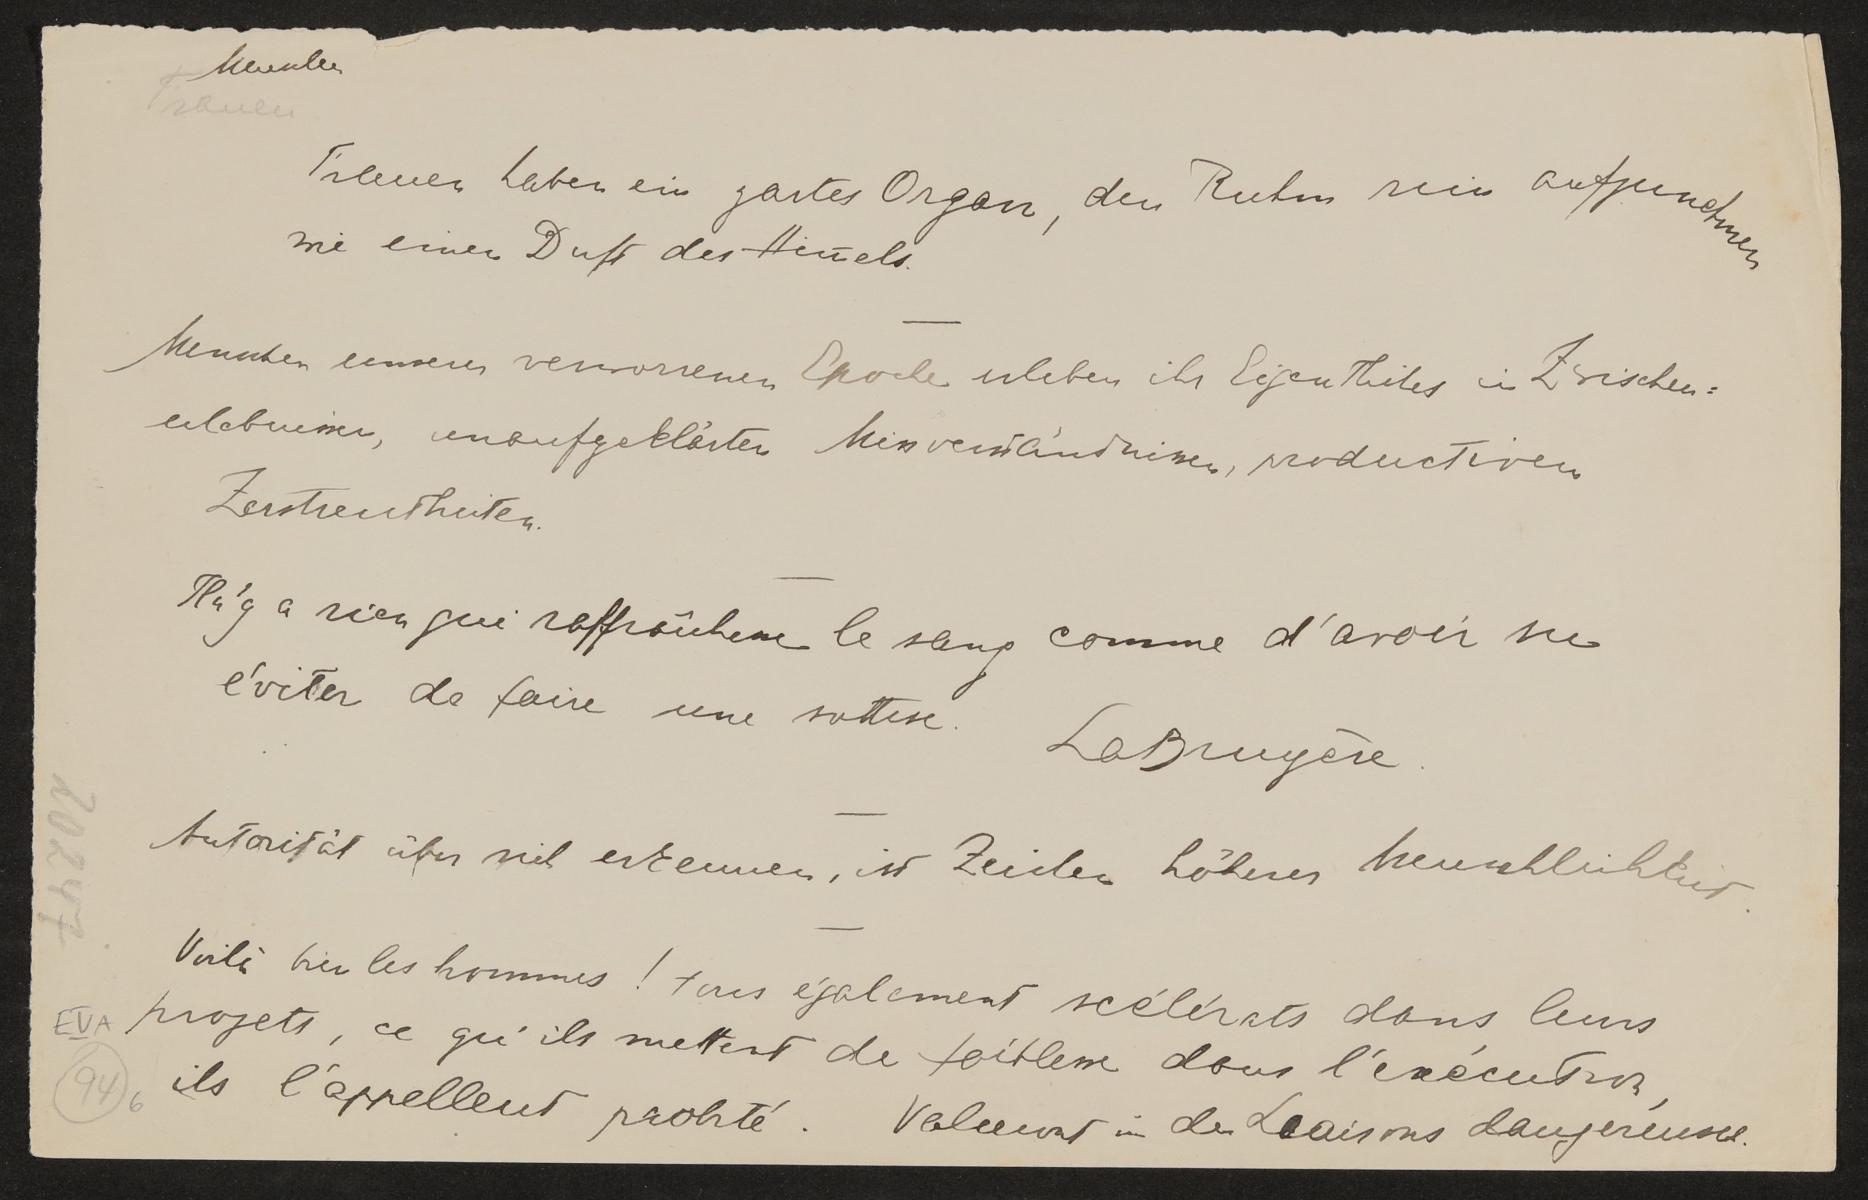 Menschen
Frauen
Frauen haben ein zartes Organ, den Ruhm rein aufzunehmen
wie einen Duft des Him̅els.
Menschen unserer verworrenen Epoche erleben ihr Eigentliches in Zwischen=
erlebnissen, unaufgeklärten Missverständnissen, productiven
Zerstreutheiten.
Il n'y a rien qui raffraîchisse le sang comme d'avoir su
éviter de faire une sottise.
LaBruyère.
Autorität über sich erkennen, ist Zeichen höherer Menschlichkeit.
Voilà bien les hommes! tous également scélérats dans leurs
projets, ce qu'ils mettent de faiblesse dans l'exécution,
ils l'appellent probité. Valmont in den Liaisons dangereuses.
20247
EVA
94 6